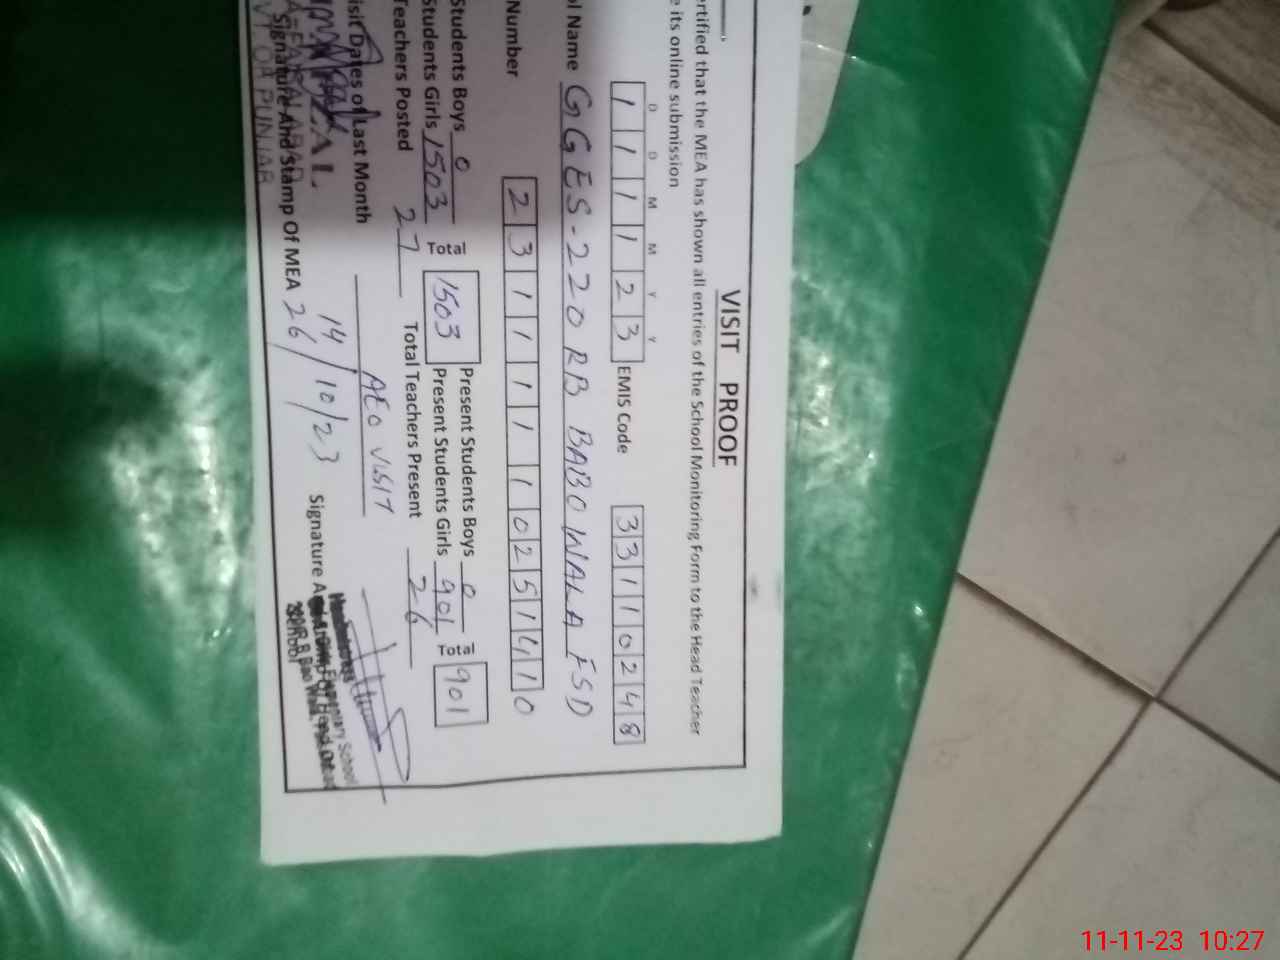 VISIT PROOF
ertified that the MEA has shown all entries of the School Monitoring Form to the Head Teacher
e its online submission
D D M M Y Y
1 1 1 1 2 3 EMIS Code 3 3 1 1 0 2 4 8
ol Name GGES-220 RB BABO WALA FSD
Number 2 3 1 1 1 1 1 0 2 5 1 4 1 0
Students Boys 0 Total 1503 Present Students Boys 0 Total 901
Students Girls 1503 Present Students Girls 901
Teachers Posted 27 Total Teachers Present 26
isit Dates of Last Month AEO VISIT
14
Signature And Stamp Of MEA 26/10/23 Signature
11-11-23 10:27